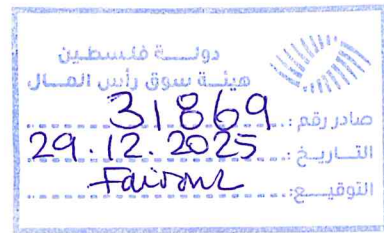 دولة فلسطين
هيئة سوق رأس المال
صادر رقم: 31869
التاريخ: 29.12.2025
التوقيع: